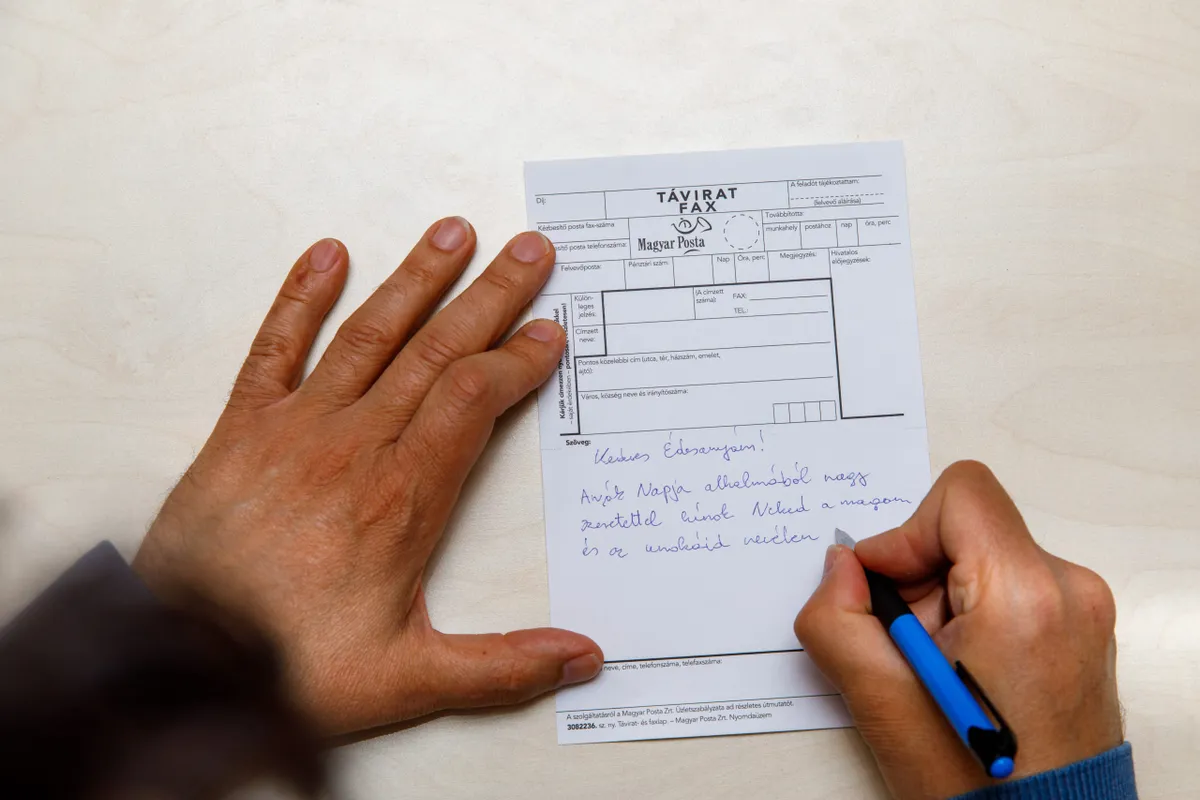 Díj:
TÁVIRAT
FAX
A feladót tájékoztattam:
(felvevő aláírása)
Kézbesítő posta fax-száma
posta telefonszáma:
Magyar Posta
Továbbította:
munkahely postához nap óra, perc
Felvevőposta:
Pénztári szám:
Nap
Óra, perc
Megjegyzés:
Hivatalos
előjegyzések:
Külön-
leges
jelzés:
(A címzett
száma):
FAX:
TEL.:
Címzett
neve:
Pontos közelebbi cím (utca, tér, házszám, emelet,
ajtó):
Város, község neve és irányítószáma:
Szöveg:
Kedves Édesanyám!
Anyák Napja alkalmából nagy
szeretettel Neked a magam
és az unokáid nevében
neve, címe, telefonszáma, telefaxszáma:
A szolgáltatásról a Magyar Posta Zrt. Üzletszabályzata ad részletes útmutatót.
3082236. sz. ny. Távirat- és faxlap. – Magyar Posta Zrt. Nyomdaüzem